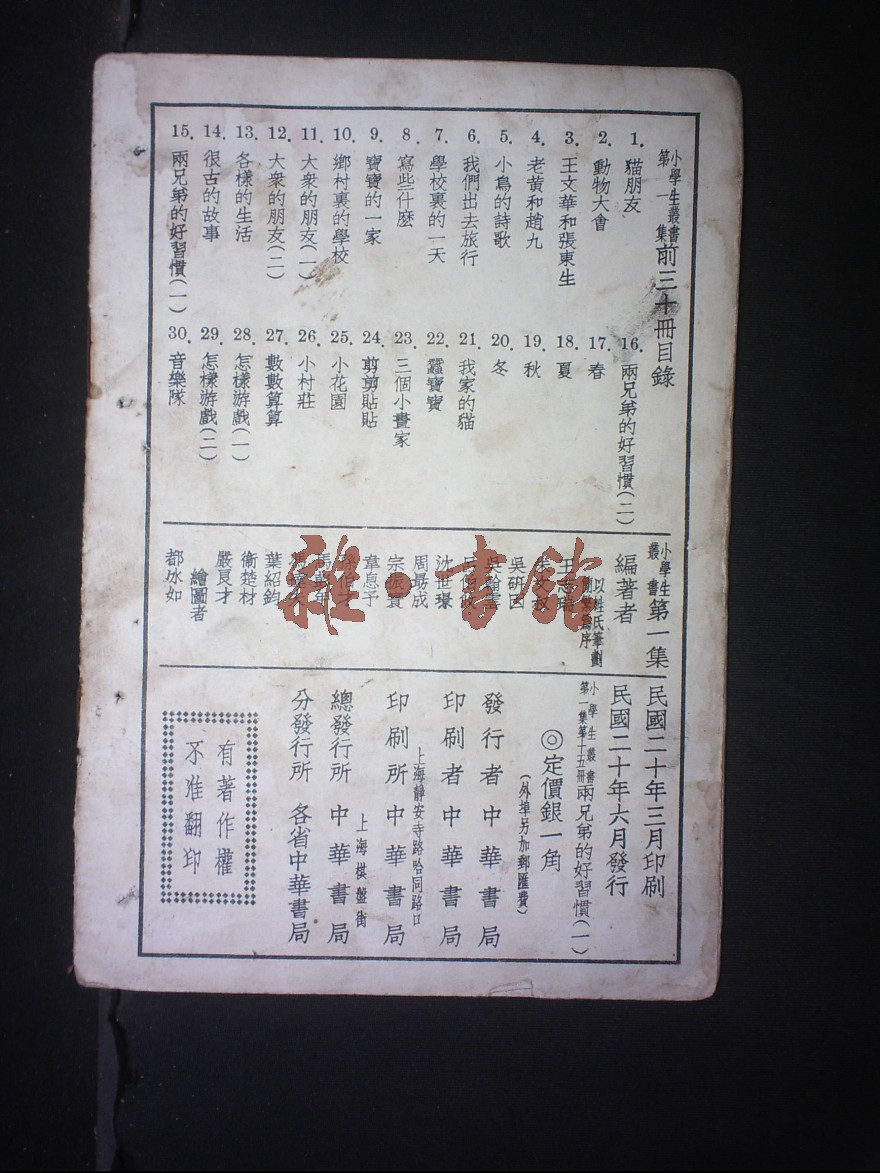 小學生叢書
第一集
前三十冊目錄
1. 貓朋友
2. 動物大會
3. 王文華和張東生
4. 老黃和趙九
5. 小鳥的詩歌
6. 我們出去旅行
7. 學校裏的一天
8. 寫些什麼
9. 寶寶的一家
10. 鄉村裏的學校
11. 大衆的朋友(一)
12. 大衆的朋友(二)
13. 各樣的生活
14. 很古的故事
15. 兩兄弟的好習慣(一)
16. 兩兄弟的好習慣(二)
17. 春
18. 夏
19. 秋
20. 冬
21. 我家的貓
22. 蠶寶寶
23. 三個小畫家
24. 剪剪貼貼
25. 小花園
26. 小村莊
27. 數數算算
28. 怎樣游戲(一)
29. 怎樣游戲(二)
30. 音樂隊
小學生
叢書
第一集
編著者
以姓氏筆劃
爲序
王志瑞
吳研因
沈世璟
周勗成
宗振寰
韋息予
葉紹鈞
衞楚材
嚴良才
繪圖者
都冰如
民國二十年三月印刷
民國二十年六月發行
小學生叢書
第一集第十五冊
兩兄弟的好習慣(一)
◎定價銀一角
(外埠另加郵匯費)
發行者 中華書局
印刷者 中華書局
上海靜安寺路哈同路口
印刷所 中華書局
上海棋盤街
總發行所 中華書局
分發行所 各省中華書局
有著作權
不准翻印
雜·書館